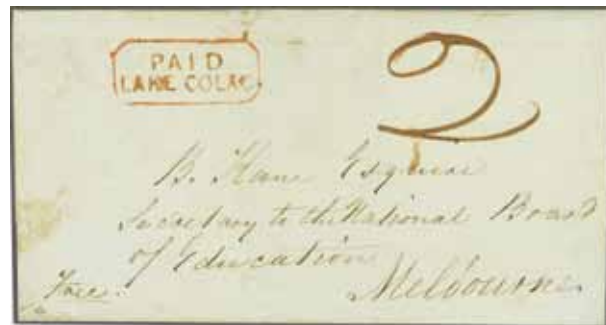 PAID
LAKE COLAC
2
B. Kane Esquire
Secretary to the National Board
of Education
Melbourne
Free.